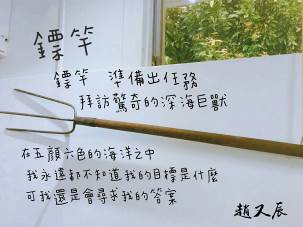 鏢竿
鏢竿 準備出任務
拜訪驚奇的深海巨獸
在五顏六色的海洋之中
我永遠都不知道我的目標是什麼
可我還是會尋求我的答案
趙又辰